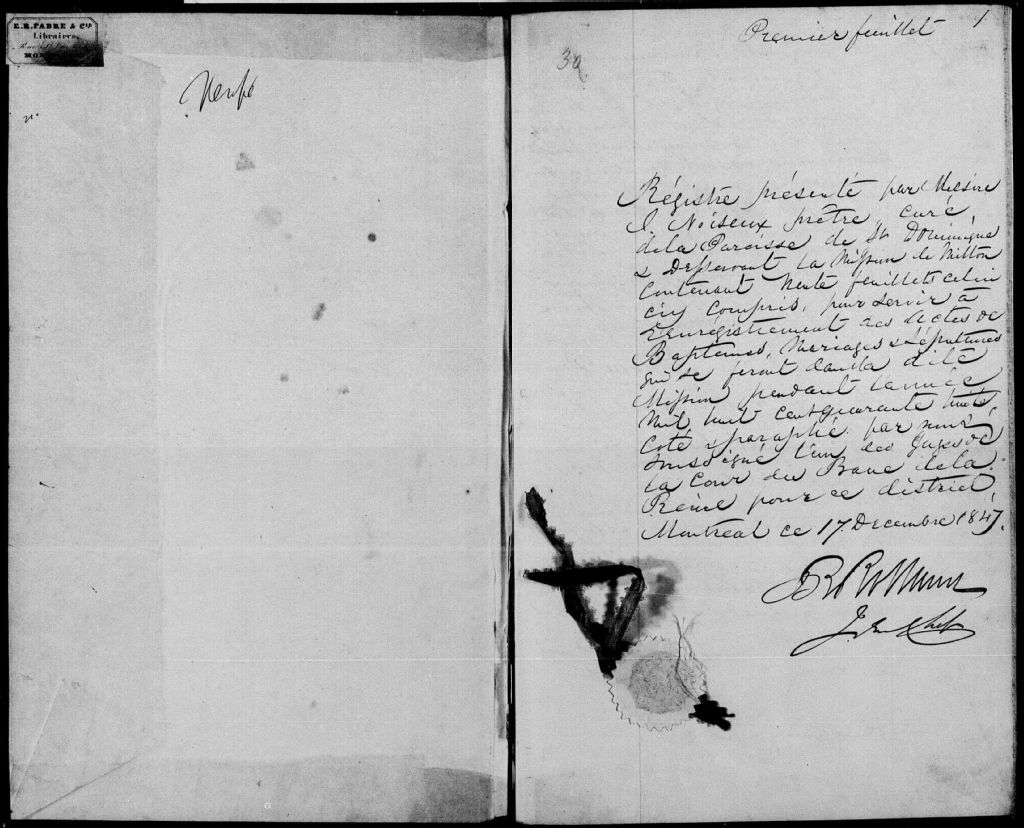 E.R. FABRE & Cie
Libraires,
Premier feuillet
1
30
Régistre présenté par Messire
J. Noiseux prêtre, curé,
de la Paroisse de St. Dominique
& Desservant la Mission de Milton
Contenant trente feuillets celui
ciy compris, pour servir à
L'enrégistrement des Actes de
Baptemes, Mariages & Sépultures
qui se feront dans la dite
Mission pendant l'année
Mil huit cent quarante huit
Coté & paraphé par nous
soussigné l'un des Juges de
la Cour du Banc de la
Reine pour ce district
Montreal ce 17 Decembre 1847.